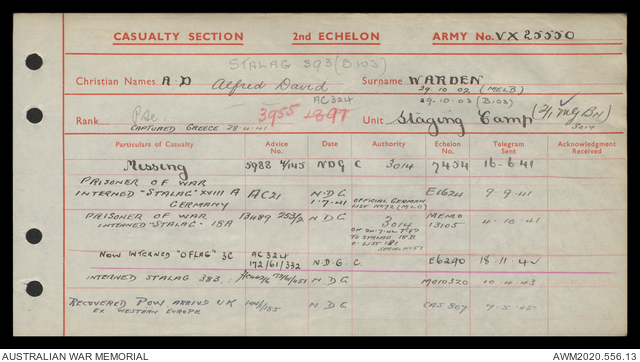 CASUALTY SECTION 2nd ECHELON ARMY No. VX 25550
STALAG 383 (B103)
Christian Names A D Alfred David Surname WARDEN
29.10.02 (MELB)
AC324 29.10.03 (B103)
Rank Pte. 3955 897 Unit Staging Camp (2/1 MG Bn)
CAPTURED GREECE 28.4.41 3014
Particulars of Casualty Advice No. Date Authority Echelon No. Telegram Sent Acknowledgment Received
Missing 5988 4/145 NDG C 3014 7454 16-6-41
PRISONER OF WAR
INTERNED "STALAG" XVIII A AC21 N.D.G E1624 9-9-41
GERMANY 1-7-41 OFFICIAL GERMAN
LIST No 72 (MLO)
PRISONER OF WAR 13489 253/2 N D G MEMO
INTERNED "STALAG" 18A 3014 13105 4-10-41
TO STALAG 18B
NOW INTERNED "OFLAG" 3C AC 324
172/61/332 N.D.G. C. E6290 18.11.42
INTERNED STALAG 383. N D G M010320 10.4.43
RECOVERED POW ARRIVED UK 185 N D G CAS 807 7-5-45
EX WESTERN EUROPE
AUSTRALIAN WAR MEMORIAL AWM2020.556.13